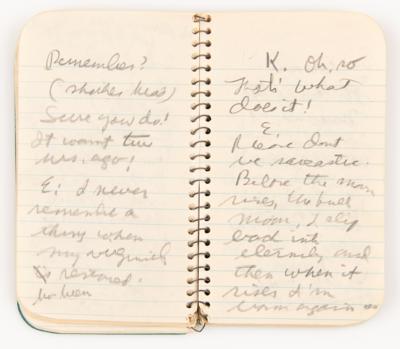 Remember?
(shakes head)
Sure you do!
It wasn't two
hrs. ago!
E: I never
remember a
thing when
my virginity
is restored.
K. Oh, so
that's what
does it!
E.
Please dont
be sarcastic.
Before the moon
rises, the full
moon, I slip
back into
eternity, and
then when it
rises I'm
born again